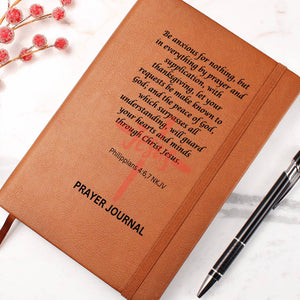 Be anxious for nothing, but
in everything by prayer and
supplication, with
thanksgiving, let your
requests be made known to
God; and the peace of God,
which surpasses all
understanding, will guard
your hearts and minds
through Christ Jesus.
Philippians 4:6,7 NKJV
PRAYER JOURNAL